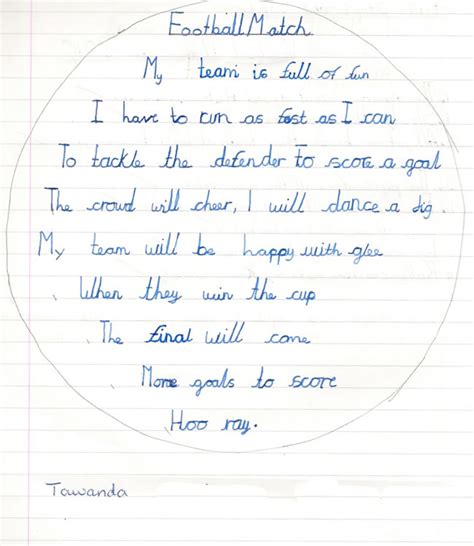 Football Match
My team is full of fun
I have to run as fast as I can
To tackle the defender to score a goal
The crowd will cheer, I will dance a dig.
My team will be happy with glee
When they win the cup
The final will come
More goals to score
Hoo ray.
Tawanda